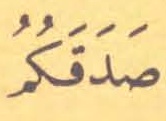 صَدَقَكُمُ